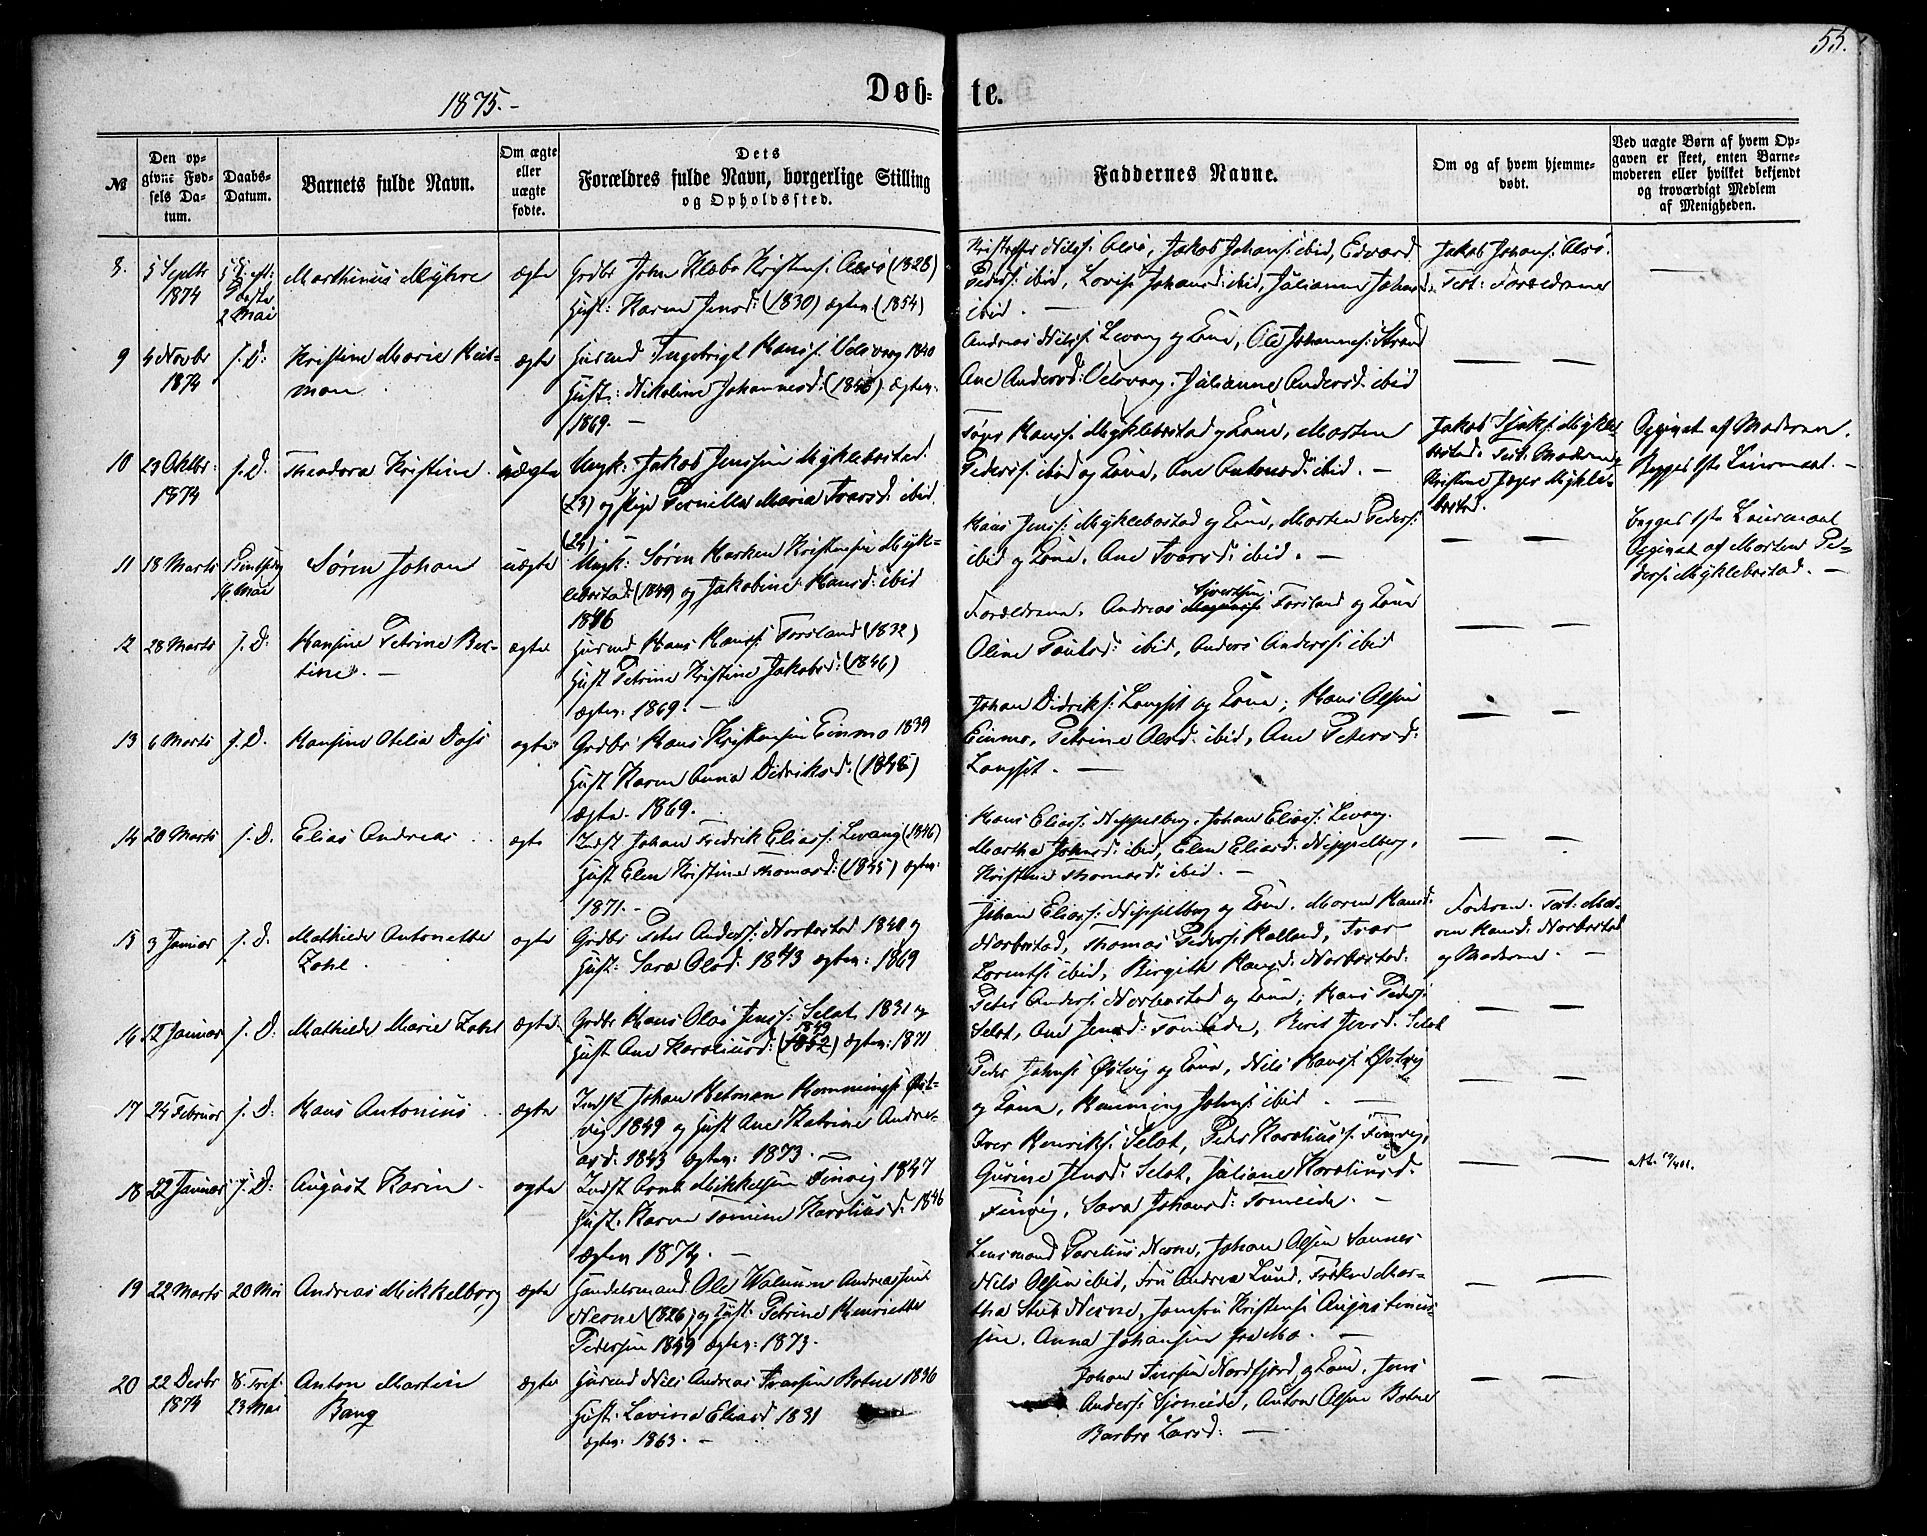 55.
1875.-
Døb-
te.
№
Den op-
givne Fød-
sels Da-
tum.
Daabs-
Datum.
Barnets fulde Navn.
Om ægte
eller
uægte
fødte.
Dets
Forældres fulde Navn, borgerlige Stilling
og Opholdssted.
Faddernes Navne.
Om og af hvem hjemme-
døbt.
Ved uægte Børn af hvem Op-
gaven er skeet, enten Barne-
moderen eller hvilket bekjendt
og troværdigt Medlem
af Menigheden.
8.
5 Septbr
1874
2 Mai
Marthinus Myhre
ægte
Grdbr John Klæbo Kristens: Alsø (1828)
Hust: Karen Jensd: (1830) ægtev. (1854)
Kristoffer Nilss: Alsø, Jakob Johans: ibid, Edvard
Peders: ibid, Lovise Johansd: ibid, Julianna Johansd.
ibid. —
Jakob Johans: Alsø.
Test: Forældrene
9
4 Novbr
1874
s. D:
Kristine Marie Heit-
man
ægte
Husmd Ingebrigt Hanss: Valsvaag 1840
Hust: Nikoline Johannesd: ægtev:
1869. —
Andreas Nilss: Levang og Kone, Ole Johanness: Strand
Ane Andersd: Julianne Andersd: ibid
10
23 Oktbr:
1874
s. D.
Theodora Kristine
uægte
Ungk: Jakob Jenssen Myklebostad
(23) og Pige Pernilla Maria Ivarsd: ibid
(24). —
Hanss: Myklebostad og Kone, Morten
Peders: ibid og Kone, Ane Antonsd: ibid. —
Jakob Myklebostad. Test: Moderen og
Kristine Jæger Myklebostad.
Opgivet af Moderen.
Begges 1ste Leiermaal. —
11
18 Marts
16 Mai
Søren Johan
uægte
Ungk: Søren Kristensen Mykl-
ebostad: (1849) og Jakobine Hansd: ibid
1846
Hans Jenss: Myklebostad og Kone, Morten Peders:
ibid og Kone, Ane Ivarsd: ibid. —
Begges 1ste Leiermaal
Opgivet af Morten Pe-
ders: Myklebostad. —
12
28 Marts
s. D:
Hansine Petrine Ber-
tine. —
ægte
Husmd Hans Hanss: Forsland (1832)
Hust Petrine Kristine Jakobsd: (1846)
ægtev. 1869. —
Forældrene, Andreas Sivertsen Forsland og Kone
Oline Paulsd: ibid, Anders Anderss: ibid
13
6 Marts
s. D.
Hansine Otelia Dass
ægte
Grdbr Hans Kristensen Einmo 1839
Hust Karen Anna Didriksd: (1848)
ægtev. 1869.
Johan Didriks: Langset og Kone; Hans Olsen
Einmo, Petrine Olsd: ibid, Ane Petersd:
Langset. —
14
20 Marts
s. D.
Elias Andreas
ægte
Indst Johan Fredrik Eliass: Levang (1846)
Hust Elen Kristine Thomasd: (1845) ægtev:
1871. —
Hans Eliass: Neppelberg, Johan Eliass: Levang.
Martha Johnsd: ibid, Elen Eliasd: Neppelberg,
Kristine Thomasd: ibid. —
15
3 Januar
s. D.
Mathilde Antonette
Zahl
ægte
Grdbr Peter Anderss: Norbostad 1840 og
Hust: Sara Olsd: 1843 ægtev: 1869
Johan Eliass: Neppelberg og Kone, Maren Hansd:
Norbostad, Thomas Peders: Halland, Ivar
Lorents: ibid, Birgith Hansd: Norbostad.
Faderen. Test: Ma-
ren Hansd: Norbostad
og Moderen. —
16
12 Januar
s. D:
Mathilde Marie Zahl
ægte
Grdbr Hans Olai Jenss: Selat 1831 og
Hust Ane Karoliusd: 1849 (1852) ægtev: 1871
Peter Anders: Norbostad og Kone; Hans Peders:
Selat, Ane Jensd: Tomeide, Jensd: Selat
17
24 Februar
s. D:
Hans Antonius
ægte
Indst Johan Hetman Hemmings: Øst-
vig 1849 og Hust Ane Katrine Andre-
asd: 1843 ægtev: 1873. —
Peder Johns: Østvig og Kone, Nils Hanss: Østvig
og Kone, Henning Johns: ibid. —
18
22 Januar
s. D:
August Karin
ægte
Indst Arnt Mikkelsen Finvig 1847
Hust: Karen Tomine Karoliusd: 1846
ægtev 1874. —
Iver Henriks: Selat, Peder Karoliuss: Finvig,
Gurine Jensd: Selat, Juliane Karoliusd.
Finvig, Sara Johansd: Tomeide. —
19
22 Marts
20 Mai
Andreas Mikkelborg
ægte
Handelsmand Ole Walnum Andreassen
Nesne (1826) og Hust: Petrine Henriette
Pedersen 1849 ægtev: 1873.
Lensmand Parelius Nesne, Johan Olsen Sannes
Nils Olsen ibid, Fru Andrea Lund, Frøken Mar-
tha Stub Nesne, Jomfru Kristense Augustinus-
sen. Anna Johansen fra Mo. —
20
22 Decbr
1874
23 Mai
Anton Martin
Bang
ægte
Husmd Nils Andreas Ivarsen Botne 1836
Hust: Lavina Eliasd 1831
ægtev: 1863. —
Johan Iversen Nordfjord og Kone, Jens
Anders: Sjoneide, Anton Olsen Botne
Barbro Larsd: —